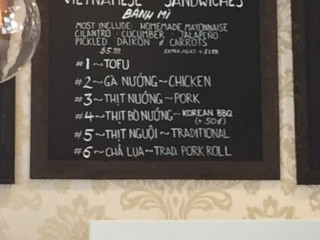 VIETNAMESE SANDWICHES
BÁNH MÌ
MOST INCLUDE: HOMEMADE MAYONNAISE
CILANTRO · CUCUMBER · JALAPEÑO
PICKLED DAIKON & CARROTS
$5.50 EXTRA MEAT
#1~TOFU
#2~GÀ NƯỚNG~CHICKEN
#3~THỊT NƯỚNG~PORK
#4~THỊT BÒ NƯỚNG~KOREAN BBQ
(+50¢)
#5~THỊT NGUỘI~TRADITIONAL
#6~CHẢ LỤA~TRAD. PORK ROLL